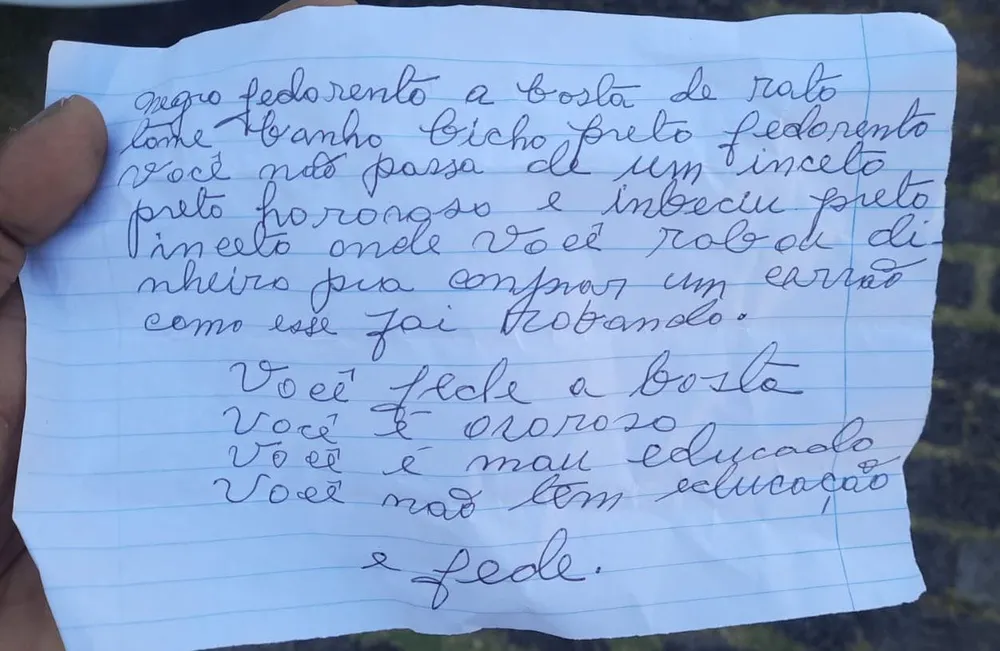 negro fedorento a bosta de rato
tome banho bicho preto fedorento
você não passa de um inceto
preto hororoso e inbeciu preto
inceto onde você robou di-
nheiro pra conprar um carrão
como esse foi robando.
Você fede a bosta
você é ororoso
você é mau educado
você não têm educação
e fede.